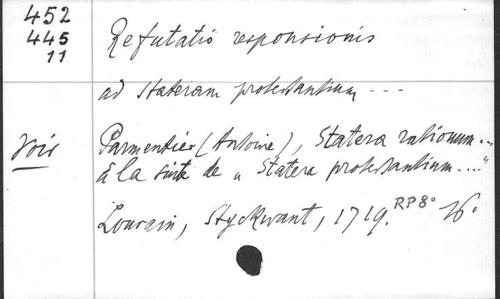 452
445
11
Refutatio responsionis
ad Stateram protestantium ---
Voir
Parmentier (Antoine), Statera rationum...
à la suite de „Statera protestantium..."
Louvain, Stryckwant, 1719. RP8° 16°